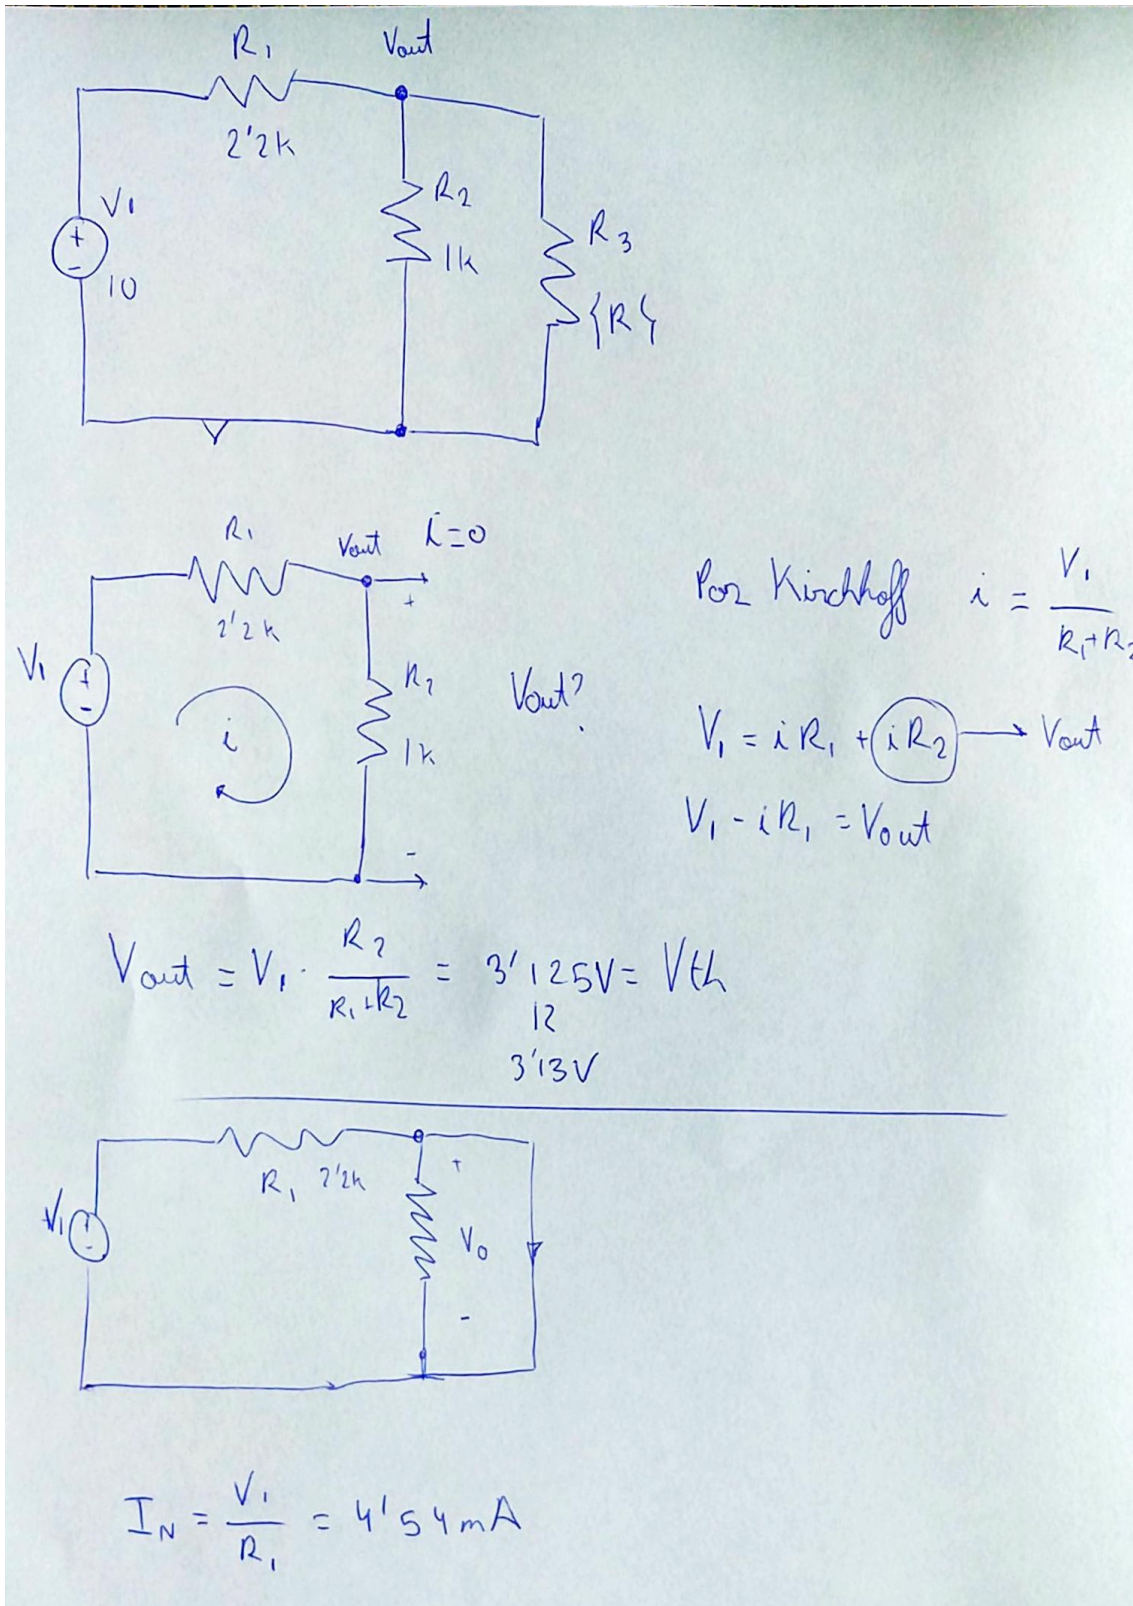 R1 Vout
2'2k
V1
+
-
10
R2
1k
R3
{R}
R1 Vout i=0
2'2k
+
V1
+
-
i
R2
1k
-
Vout?
Por Kirchhoff i = V1 / R1+R2
V1 = iR1 + iR2 → Vout
V1 - iR1 = Vout
Vout = V1 · R2 / R1+R2 = 3'125V = Vth
12
3'13V
R1 2'2k
V1
+
-
+
V0
-
IN = V1 / R1 = 4'54mA